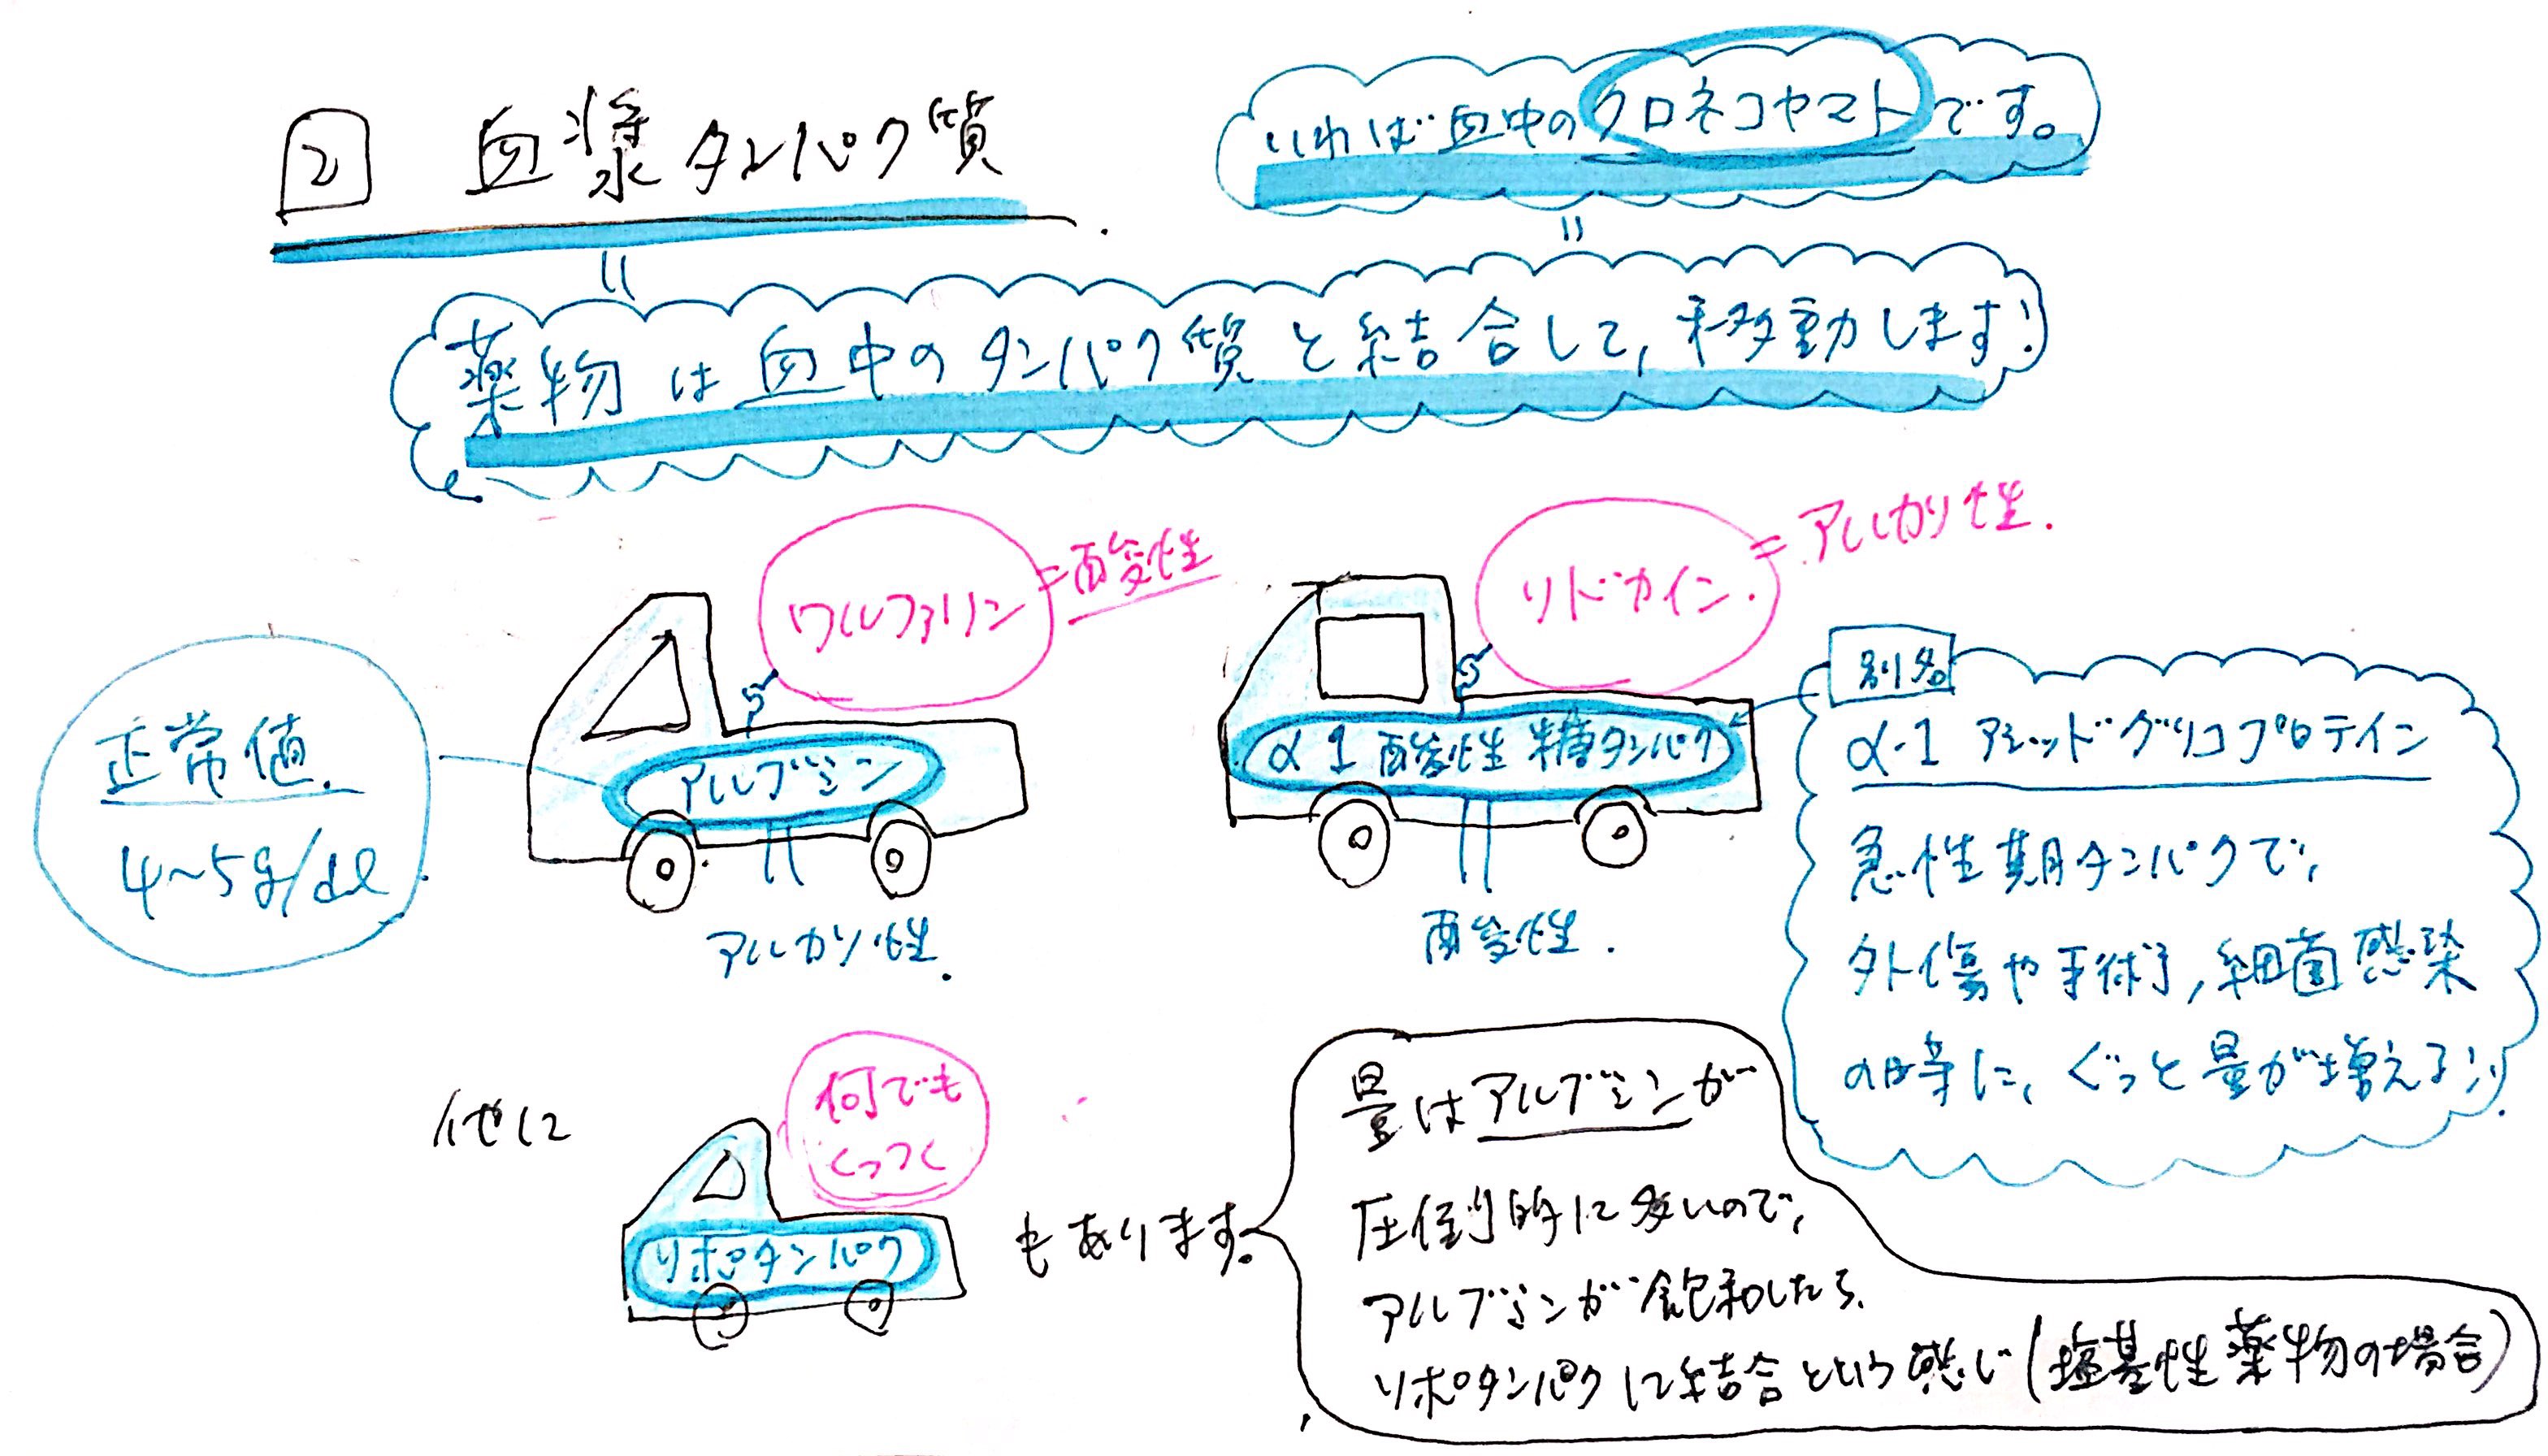 2 血漿タンパク質
いわば血中のクロネコヤマトです。
薬物は血中のタンパク質と結合して、移動します!
ワルファリン=酸性
リドカイン.=アルカリ性.
正常値.
4~5g/dl.
アルブミン
アルカリ性.
α1酸性糖タンパク
酸性.
別名
α-1アシッドグリコプロテイン
急性期タンパクで、
外傷や手術, 細菌感染
の時に、ぐっと量が増える!!
他に
何でも
くっつく
リポタンパク
もあります。
量はアルブミンが
圧倒的に多いので、
アルブミンが飽和したら、
リポタンパクに結合という感じ(塩基性薬物の場合)